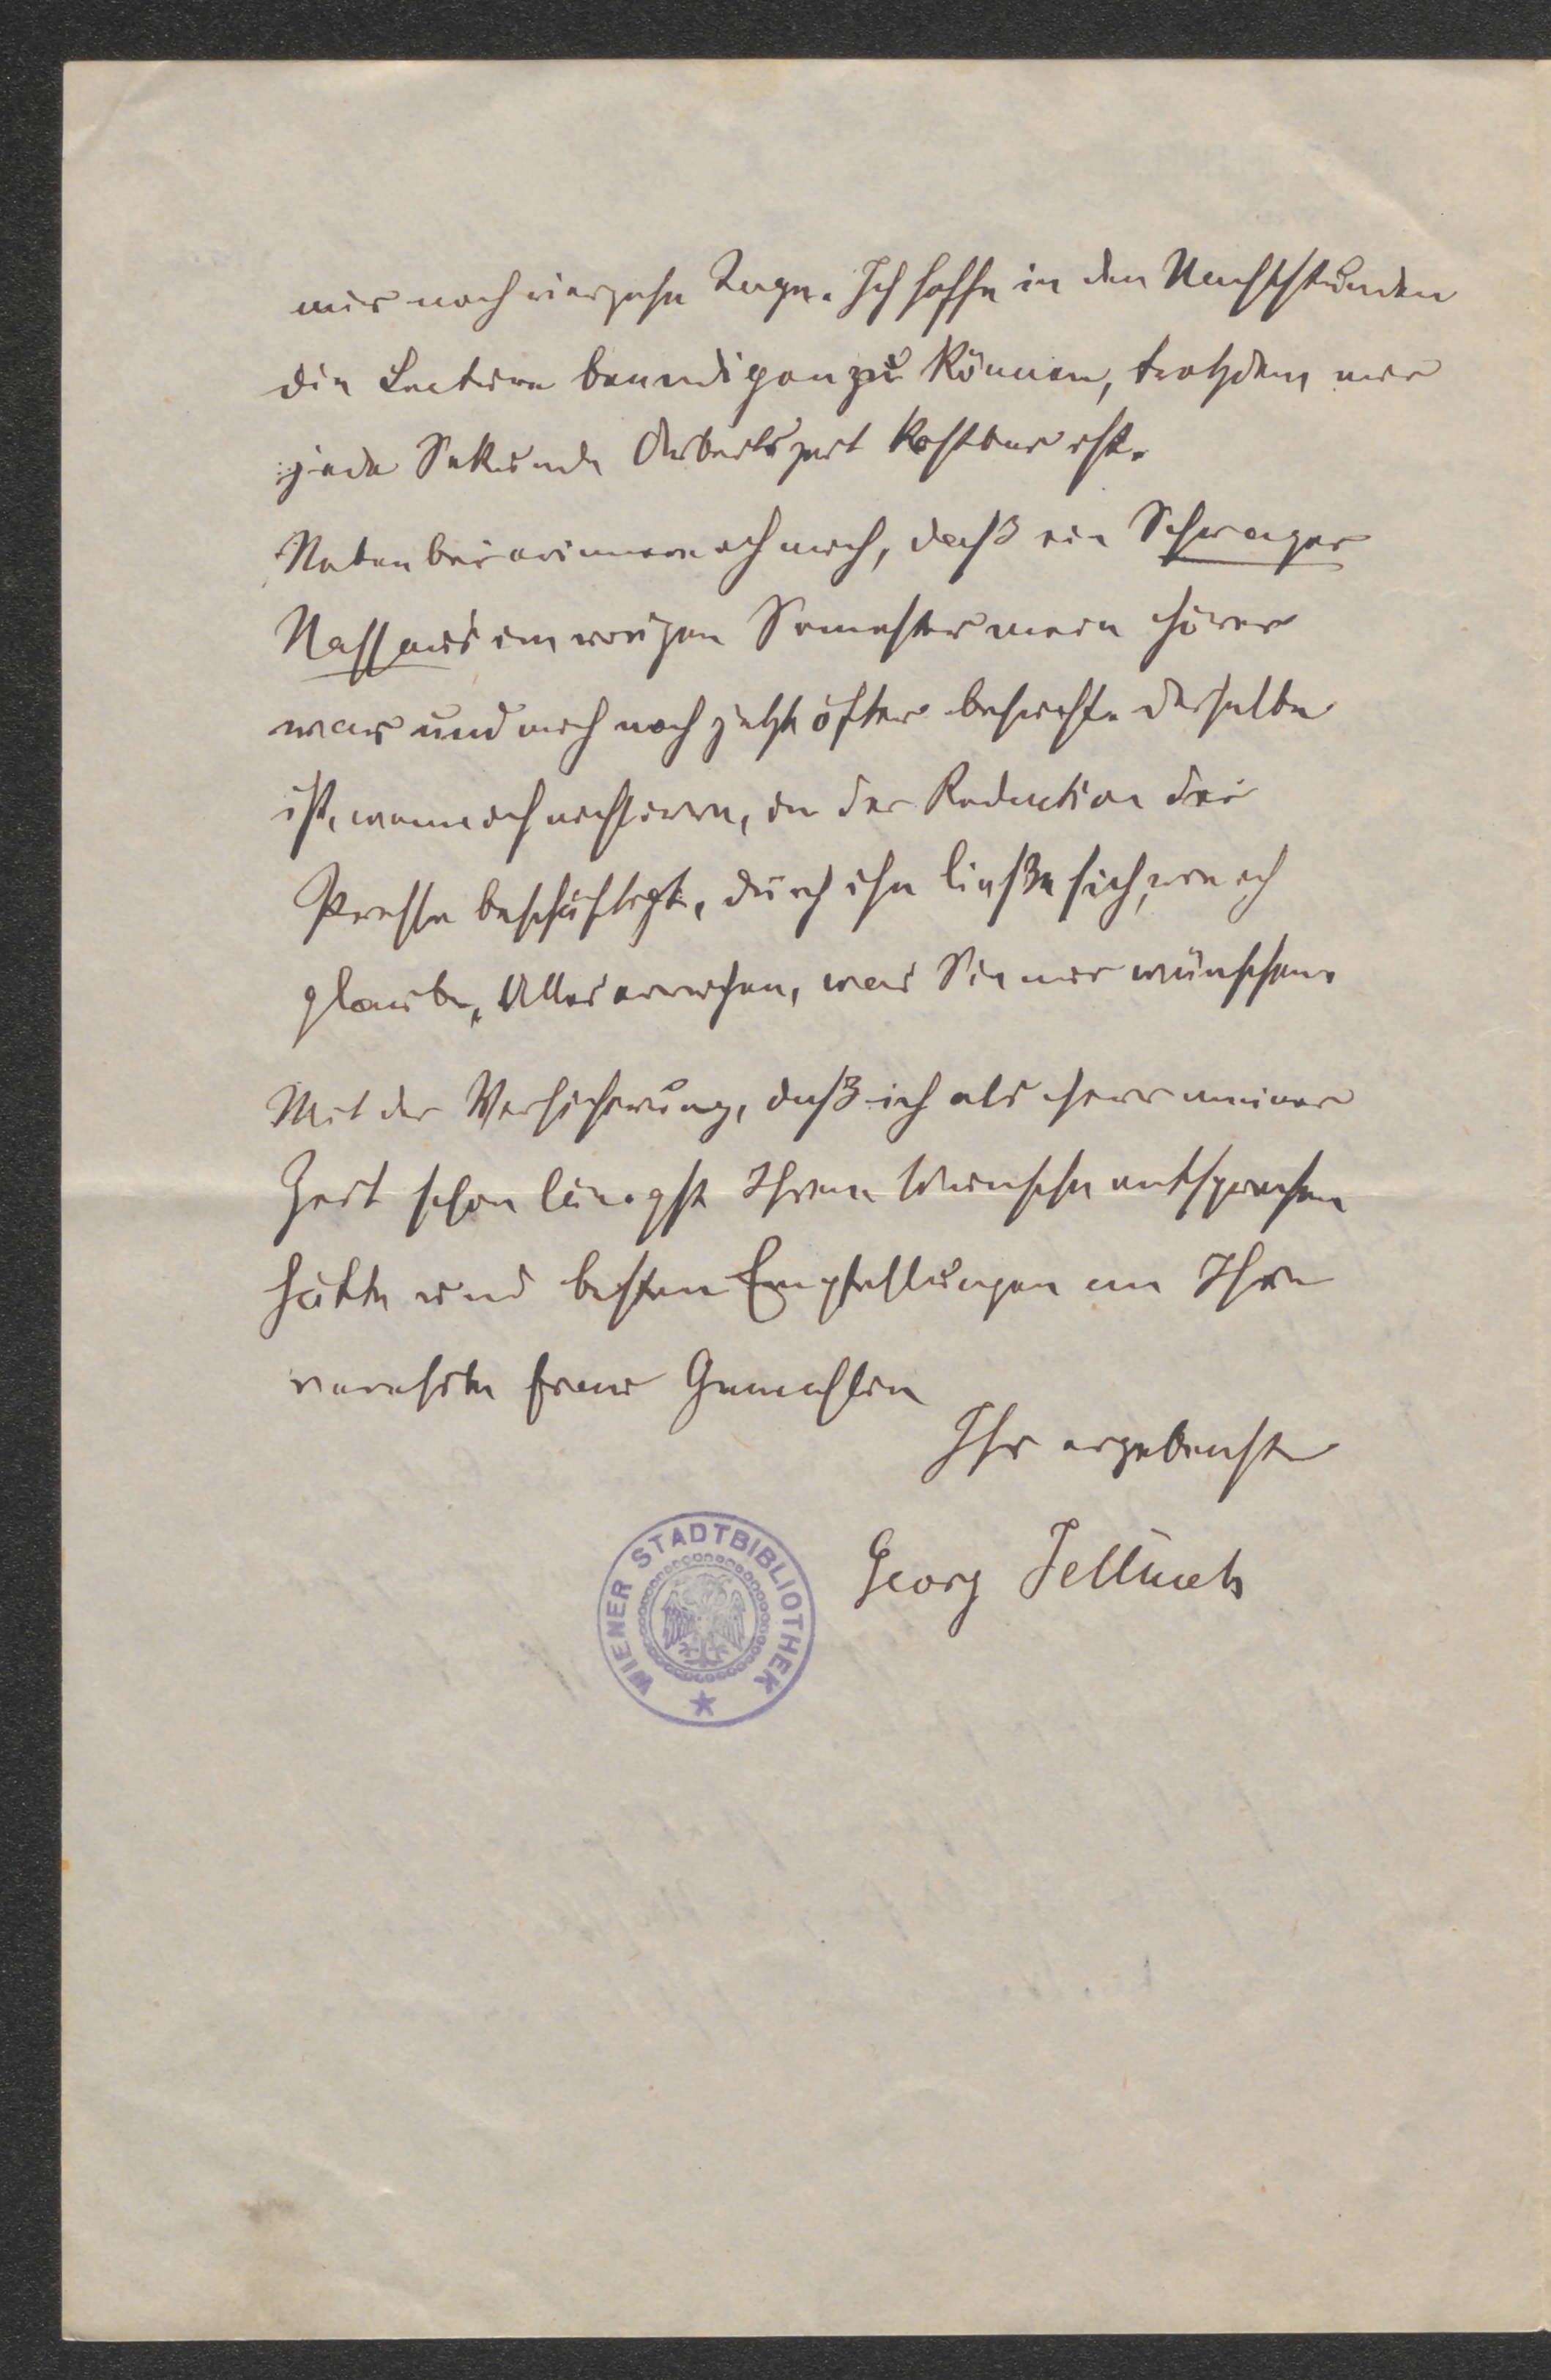 mir noch vierzehn Tage. Ich hoffe in den Nachtstunden
die Lectüre beendigen zu können, trotzdem mir
jede Sekunde Arbeitszeit kostbar ist.
Nebenbei erinnere ich mich, daß ein Schwager
im vorigen Semester mein Hörer
war und mich noch jetzt öfter besucht. Derselbe
ist, wenn ich nicht irre, in der Redaction der
Presse beschäftigt, durch ihn ließe sich, wie ich
glaube, Alles erreichen, was Sie nur wünschen.
Mit der Versicherung, daß ich als Herr meiner
Zeit schon längst Ihrem Wunsche entsprochen
hätte und besten Empfehlungen an Ihre
verehrte Frau Gemahlin
Ihr ergebenster
Georg Jellinek
WIENER STADTBIBLIOTHEK